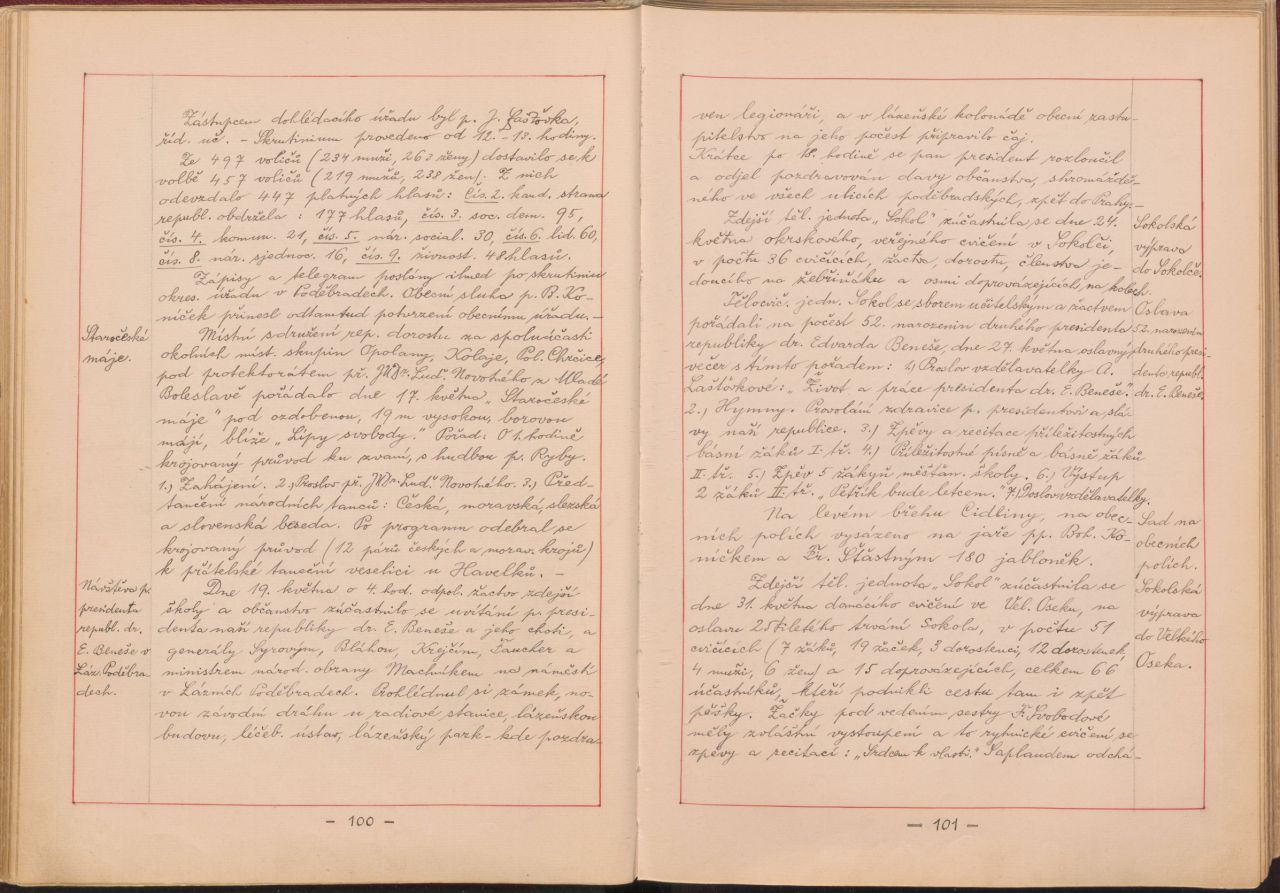 Zástupcem dohlédacího úřadu byl p. J. Laštovka,
říd. uč. – Skrutinium provedeno od 12. – 18. hodiny.
Ze 497 voličů (234 muži, 263 ženy) dostavilo se k
volbě 457 voličů (219 mužů, 238 žen). Z nich
odevzdalo 447 platných hlasů: Čís. 2. kand. strana
republ. obdržela : 177 hlasů, čís. 3. soc. dem. 95,
čís. 4. komun. 21, čís. 5. nár. social. 30, čís. 6. lid. 60,
čís. 8. nár. sjednoc. 16, čís. 9. živnost. 48 hlasů.
Zápisy a telegram poslány ihned po skrutiniu
okres. úřadu v Poděbradech. Obecní sluha p. B. Ko-
níček přinesl odtamtud potvrzení obecnímu úřadu. –
Staročeské
máje.
Místní sdružení rep. dorostu za spoluúčasti
okolních míst. skupin Opolany, Kolaje, Pol. Chrčice,
pod protektorátem př. JUDr. Luď. Novotného z Mladé
Boleslavě pořádalo dne 17. května „Staročeské
máje" pod ozdobenou, 19 m vysokou, borovou
májí, blíže „Lípy svobody." Pořad: O 1. hodině
krojovaný průvod ku zvaní, s hudbou p. Ryby.
1.) Zahájení. 2.) Proslov př. JUDr. Luď. Novotného. 3.) Před-
tančení národních tanců: Česká, moravská, slezská
a slovenská beseda. Po programu odebral se
krojovaný průvod (12 párů českých a morav. krojů)
k přátelské taneční veselici u Havelků. –
Návštěva p.
presidenta
republ. dr.
E. Beneše v
Láz. Poděbra-
dech.
Dne 19. května o 4. hod. odpol. žactvo zdejší
školy a občanstvo zúčastnilo se uvítání p. presi-
denta naší republiky dr. E. Beneše a jeho choti, a
generály Syrovým, Bláhou, Krejčím, Faucher a
ministrem národ. obrany Machníkem na náměstí
v Lázních Poděbradech. Prohlédnul si zámek, no-
vou závodní dráhu u radiové stanice, lázeňskou
budovu, léčeb. ústav, lázeňský park – kde pozdra-
– 100 –
ven legionáři, a v lázeňské kolonádě obecní zastu-
pitelstvo na jeho počest připravilo čaj.
Krátce po 18. hodině se pan president rozloučil
a odjel pozdravován davy občanstva, shromáždě-
ného ve všech ulicích poděbradských, zpět do Prahy. –
Zdejší těl. jednota „Sokol" zúčastnila se dne 24.
května okrskového, veřejného cvičení v Sokolči,
v počtu 36 cvičících, žactva, dorostu, členstva je-
doucího na žebřiňáku a osmi doprovázejících, na kolech.
Sokolská
výprava
do Sokolče.
Tělocvič. jedn. Sokol se sborem učitelským a žactvem
pořádali na počest 52. narozenin druhého presidenta
republiky dr. Edvarda Beneše, dne 27. května oslavný
večer s tímto pořadem: 1.) Proslov vzdělavatelky A.
Laštovkové: „Život a práce presidenta dr. E. Beneše".
2.) Hymny. Provolání zdravice p. presidentovi a slá-
vy naší republice. 3.) Zpěvy a recitace příležitostných
básní žáků I. tř. 4.) Příležitostné písně a básně žáků
II. tř. 5.) Zpěv 5 žákyň měšťan. školy. 6.) Výstup
2 žáků II. tř. „Petřík bude letcem." 7.) Doslov vzdělavatelky.
Oslava
52. narozenin
druhého presi-
denta republ.
dr. E. Beneše.
Na levém břehu Cidliny, na obec-
ních polích vysázeno na jaře pp. Boh. Ko-
níčkem a Fr. Šťastným 180 jabloněk.
Sad na
obecních
polích.
Zdejší těl. jednota „Sokol" zúčastnila se
dne 31. května domácího cvičení ve Vel. Oseku, na
oslavu 25tiletého trvání Sokola, v počtu 51
cvičících (7 žáků, 19 žaček, 3 dorostenci, 12 dorostenek,
4 muži, 6 žen) a 15 doprovázejících, celkem 66
účastníků, kteří podnikli cestu tam i zpět
pěšky. Žačky pod vedením sestry F. Svobodové
měly zvláštní vystoupení a to rytmické cvičení se
zpěvy a recitací: „Srdcem k vlasti." S aplausem odchá-
Sokolská
výprava
do Velkého
Oseka.
– 101 –